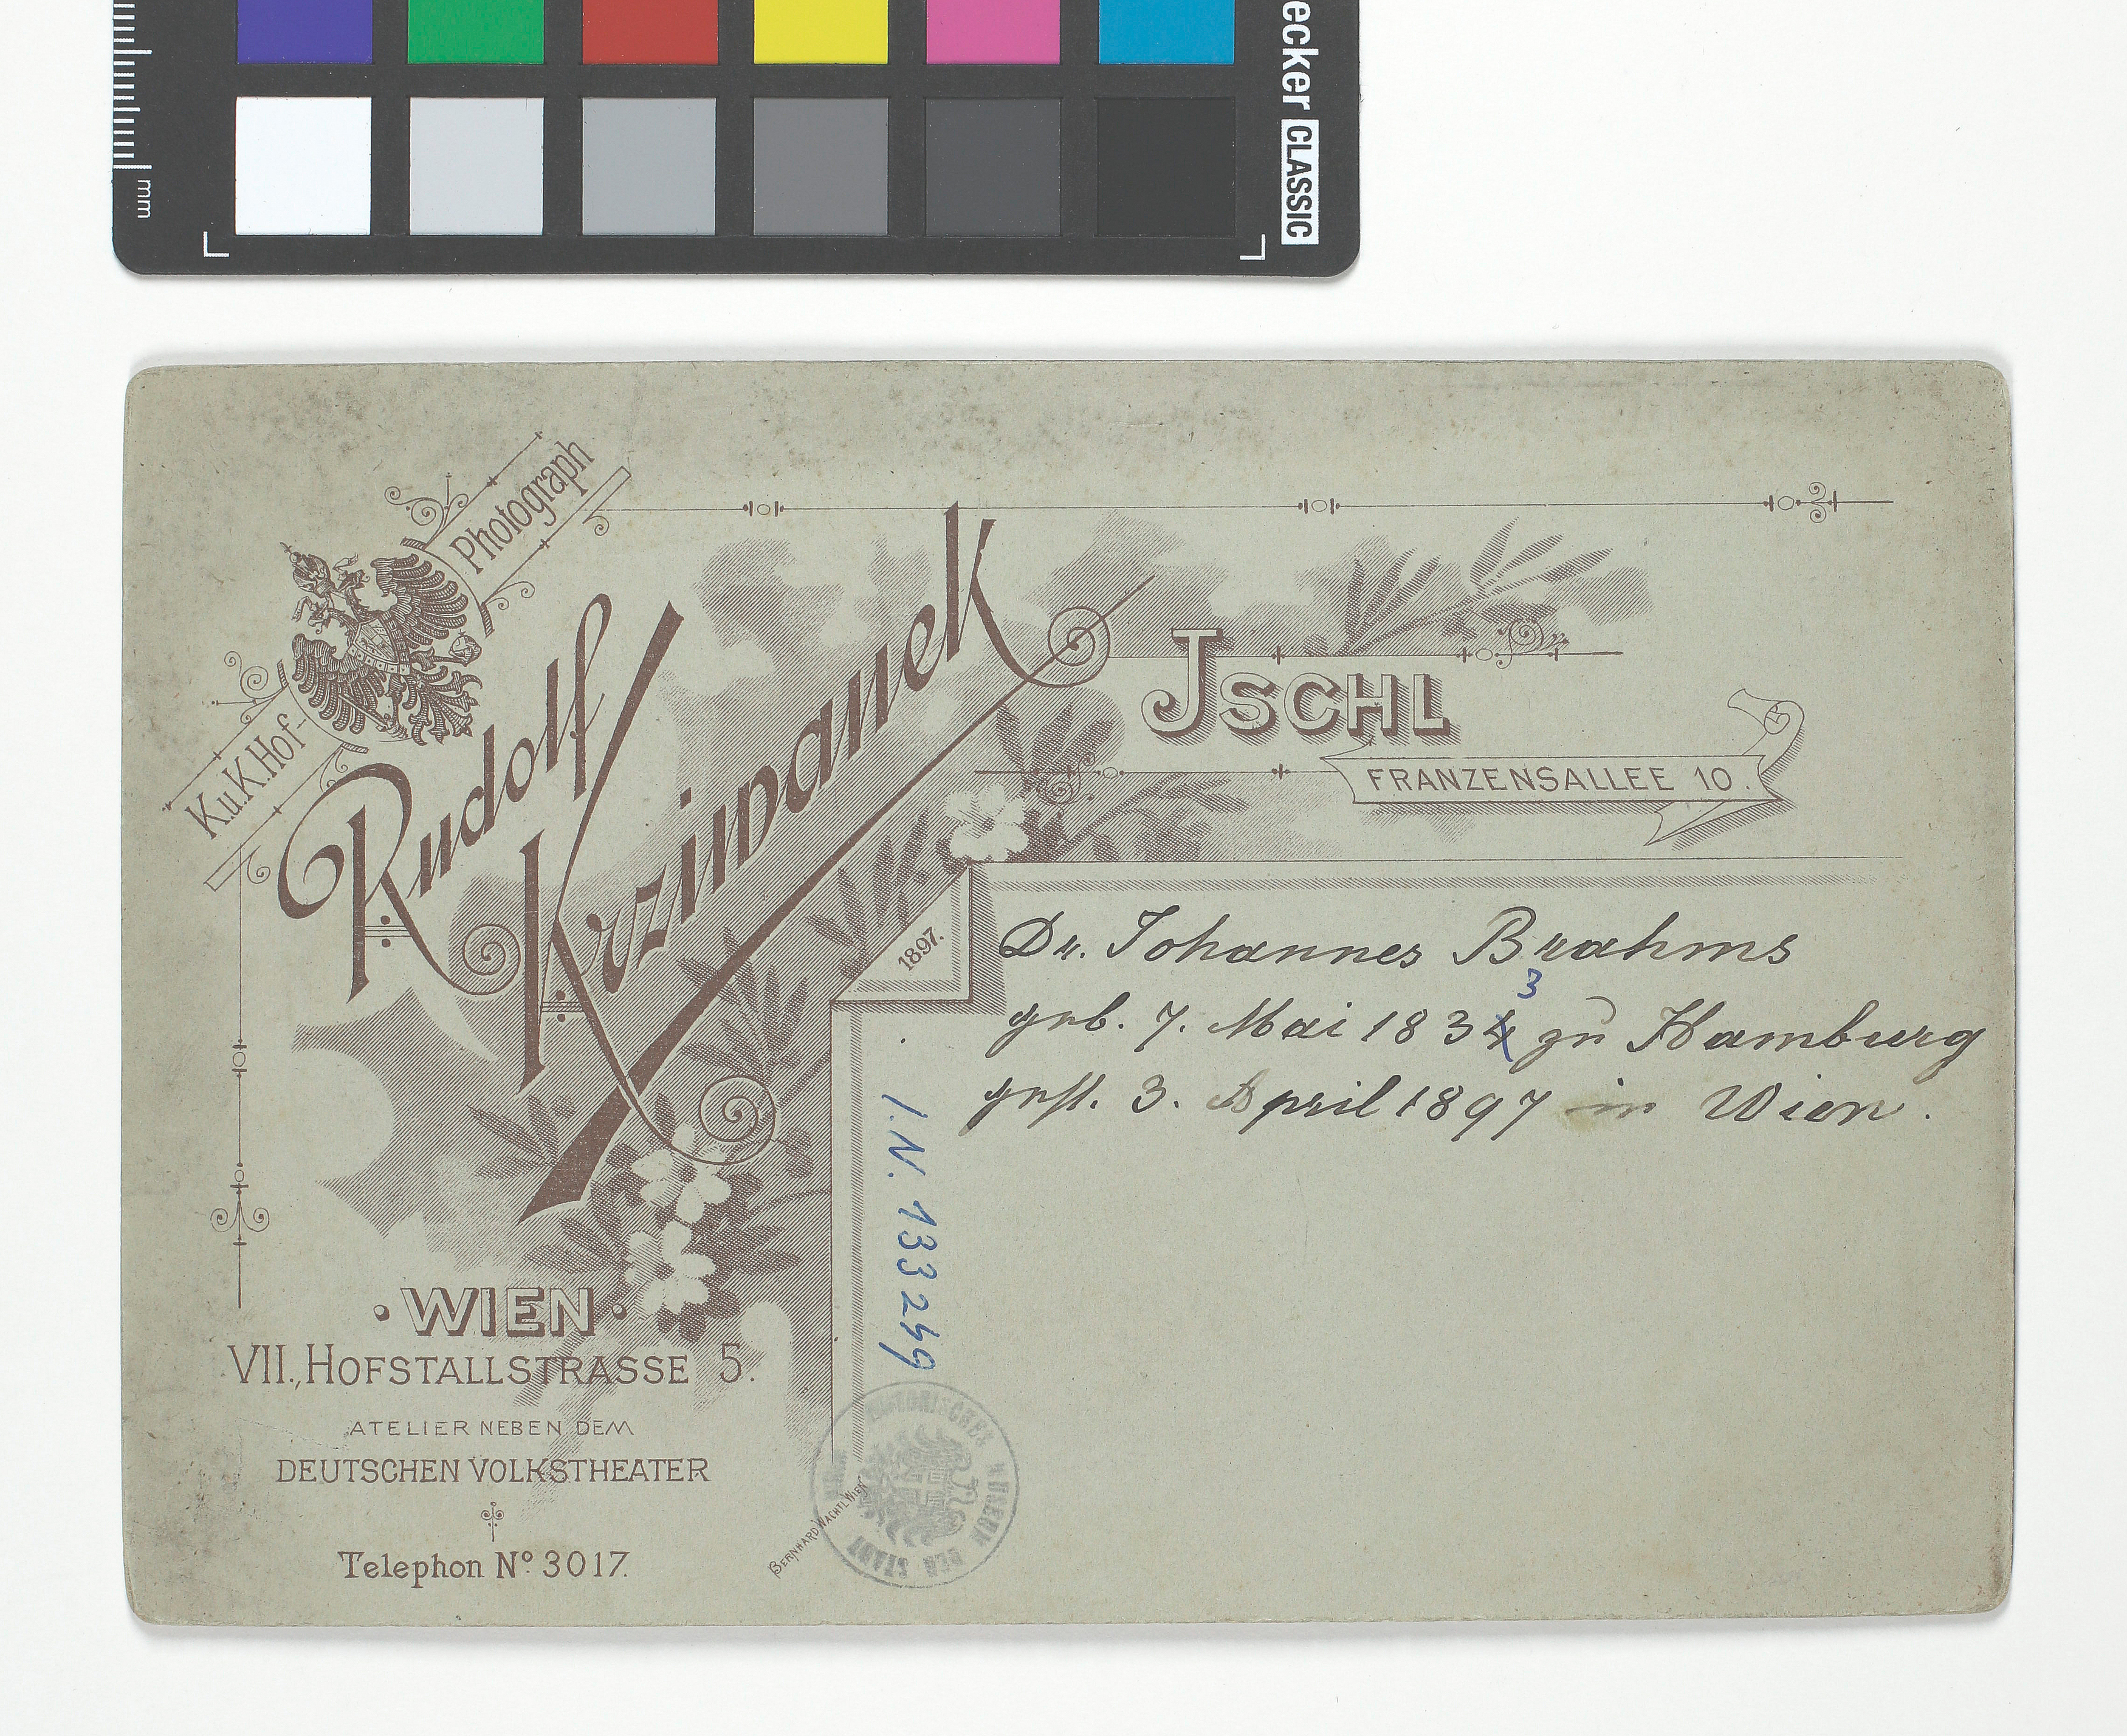 ecker CLASSIC
mm
K.u.K.Hof-
Photograph
Rudolf
Krziwanek
JSCHL
FRANZENSALLEE 10.
1897.
Dr. Johannes Brahms
3
geb. 7. Mai 1834 zu Hamburg
gest. 3. April 1897 in Wien.
I.N. 133249
• WIEN •
VII., HOFSTALLSTRASSE 5.
ATELIER NEBEN DEM
DEUTSCHEN VOLKSTHEATER
Telephon No. 3017.
BERNHARD WACHTL WIEN
HISTORISCHES MUSEUM DER STADT WIEN